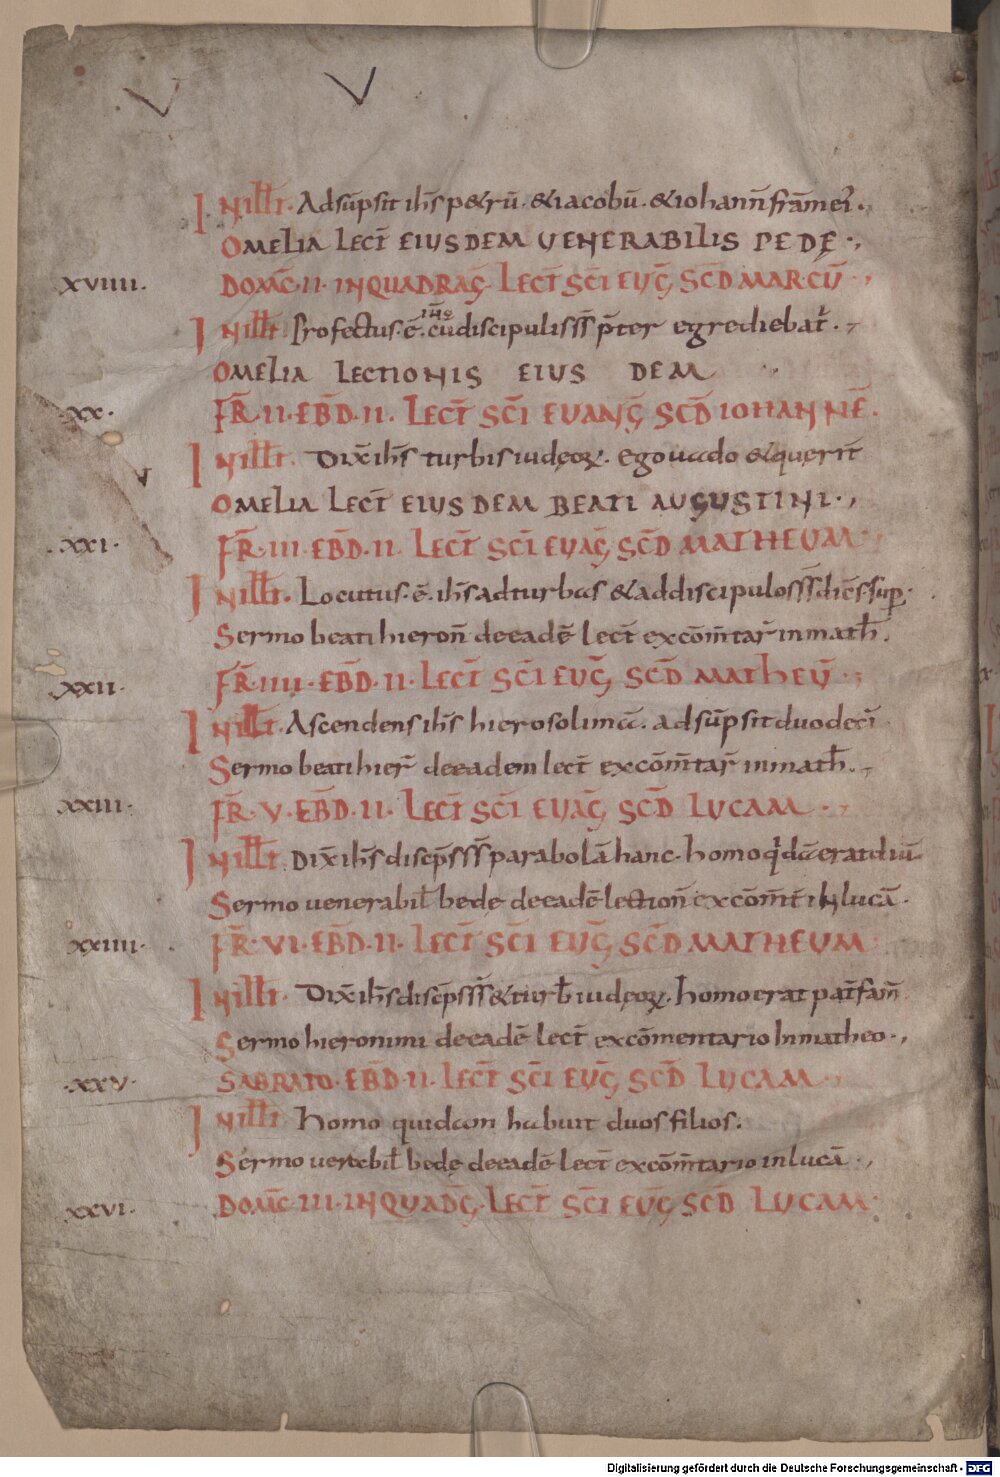 IN ILL̄T. Adsūpsit ih̄s p&rū. &iacobū. &iohann̄ frām ei᾽.
OMELIA LECT̄ EIUSDEM VENERABILIS PEDĘ.,
XVIIII. DOM̄C. II. INQUADRAḠ. LECT̄ SC̄I EUḠ SCD̄ MARCŪ.,
IN ILL̄T. Profectus. ē. ih̄c cūdiscipulisss̄ p̄ter egrediebat᾽.
OMELIA LECTIONIS EIUSDEM
XX. FR̄. II. EBD̄. II. LECT̄ SC̄I EVANḠ SCD̄ IOHANNĒ.
IN ILL̄T. Dix̄ ih̄s turbis iudęoꝝ. Ego uado &querit̄
V
OMELIA LECT̄ EIUSDEM BEATI AUGUSTINI.,
XXI. FR̄. III. EBD̄. II. LECT̄ SC̄I EUAḠ SCD̄ MATHEUM
IN ILL̄T. Locutus. ē. ih̄s adturbas &addiscipulosss̄ dicēs. sup̄.
Sermo beati hieron̄ deeadē lect̄ excōm̄tar̄ inmath̄.
XXII. FR̄. IIII. EBD̄. II. LECT̄ SC̄I EUḠ SCD̄ MATHEŪ
IN ILL̄T. Ascendens ih̄s hierosolimā. adsūpsit duodecī
Sermo beati hier̄ deeadem lect̄ excōm̄tar̄ inmath̄.,
XXIII. FR̄. V. EBD̄. II. LECT̄ SC̄I EUAḠ SCD̄ LUCAM.
IN ILL̄T. Dix̄ ih̄s discip̄sss̄ parabolā hanc. homo qͥdā erat diū.
Sermo uenerabil̄ bedę deeadē lection̄ excōm̄t̄ inlucā.
XXIIII. FR̄. VI. EBD̄. II. LECT̄ SC̄I EUḠ SCD̄ MATHEUM
IN ILL̄T. Dix̄ ih̄s discip̄sss̄ &turb̄ iudęoꝝ. homo erat pat̄fam̄
Sermo hieronimi deeadē lect̄ excōmentario inmatheo.,
XXV. SABBATO. EBD̄. II. LECT̄ SC̄I EUḠ SCD̄ LUCAM
IN ILL̄T. Homo quidam habuit duos filios.
Sermo uenebil̄ bedę deeadē lect̄ excōm̄tario inlucā.,
XXVI. DOM̄C. III. INQUADḠ. LECT̄ SC̄I EUḠ SCD̄ LUCAM
Digitalisierung gefördert durch die Deutsche Forschungsgemeinschaft - DFG